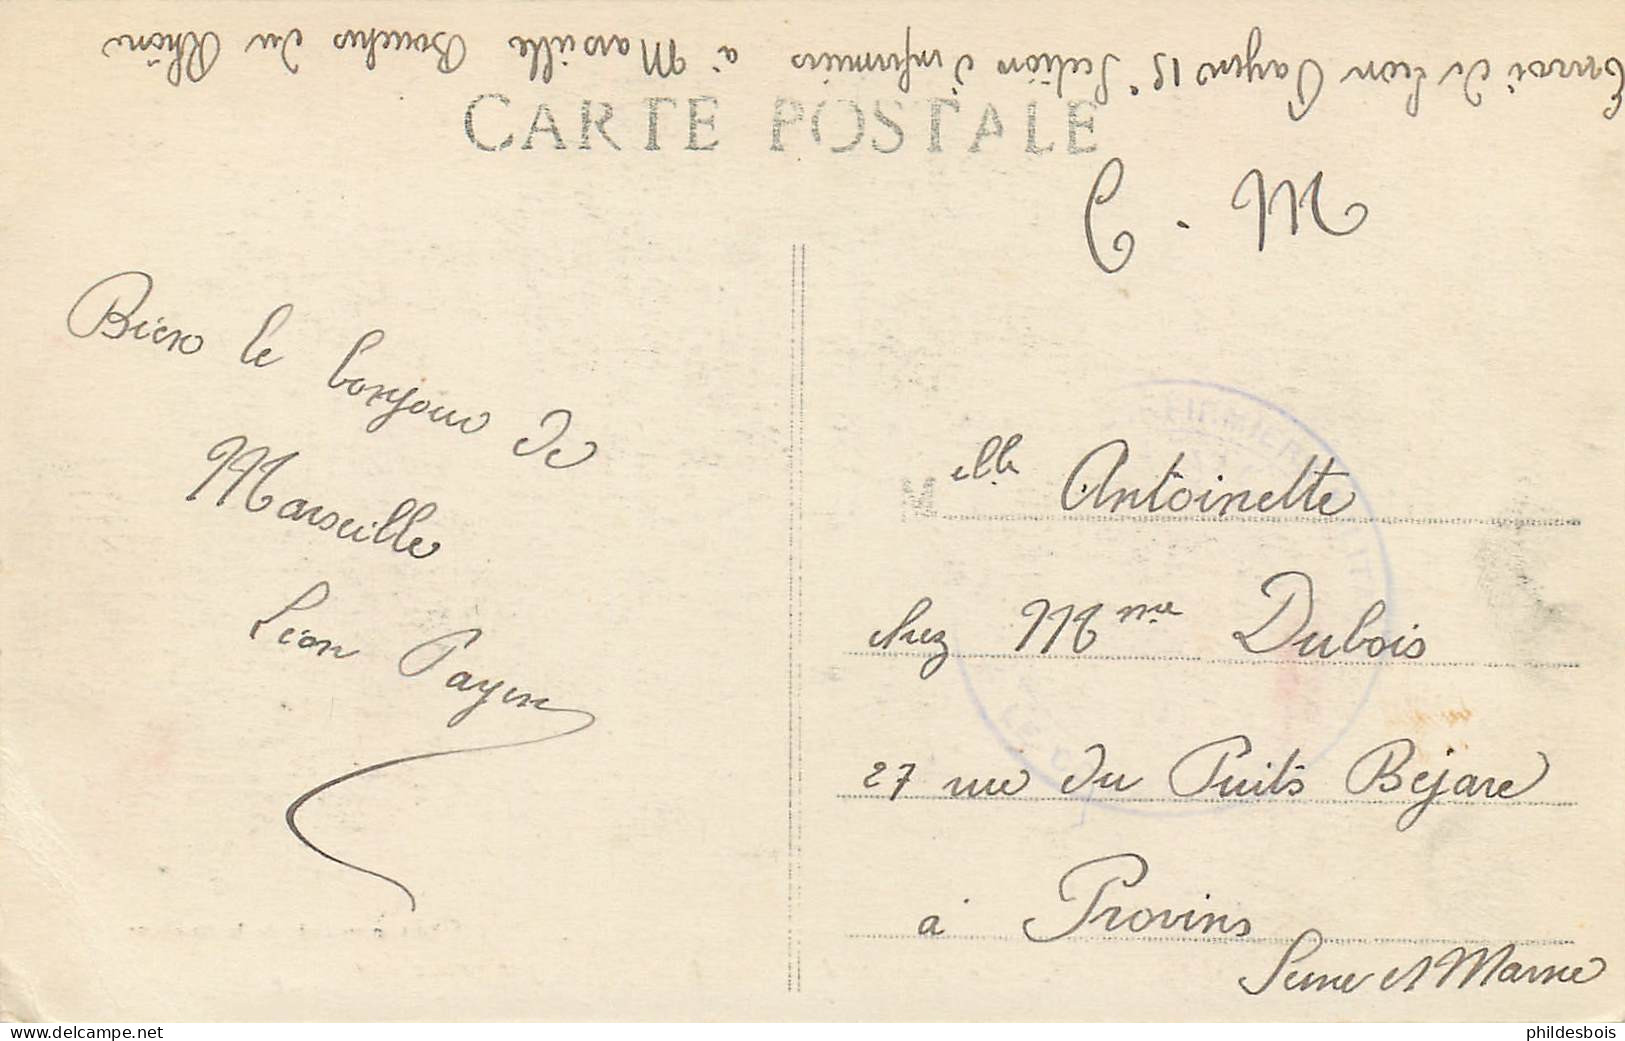 Envoi de Léon Payen 15e Section d'infirmiers à Marseille Bouches du Rhône
CARTE POSTALE
F. M.
Bien le bonjour de
Marseille
Léon Payen
Melle Antoinette
chez Mme Dubois
27 rue du Puits Bejare
à Provins
Seine et Marne
delcampe.net
phildesbois